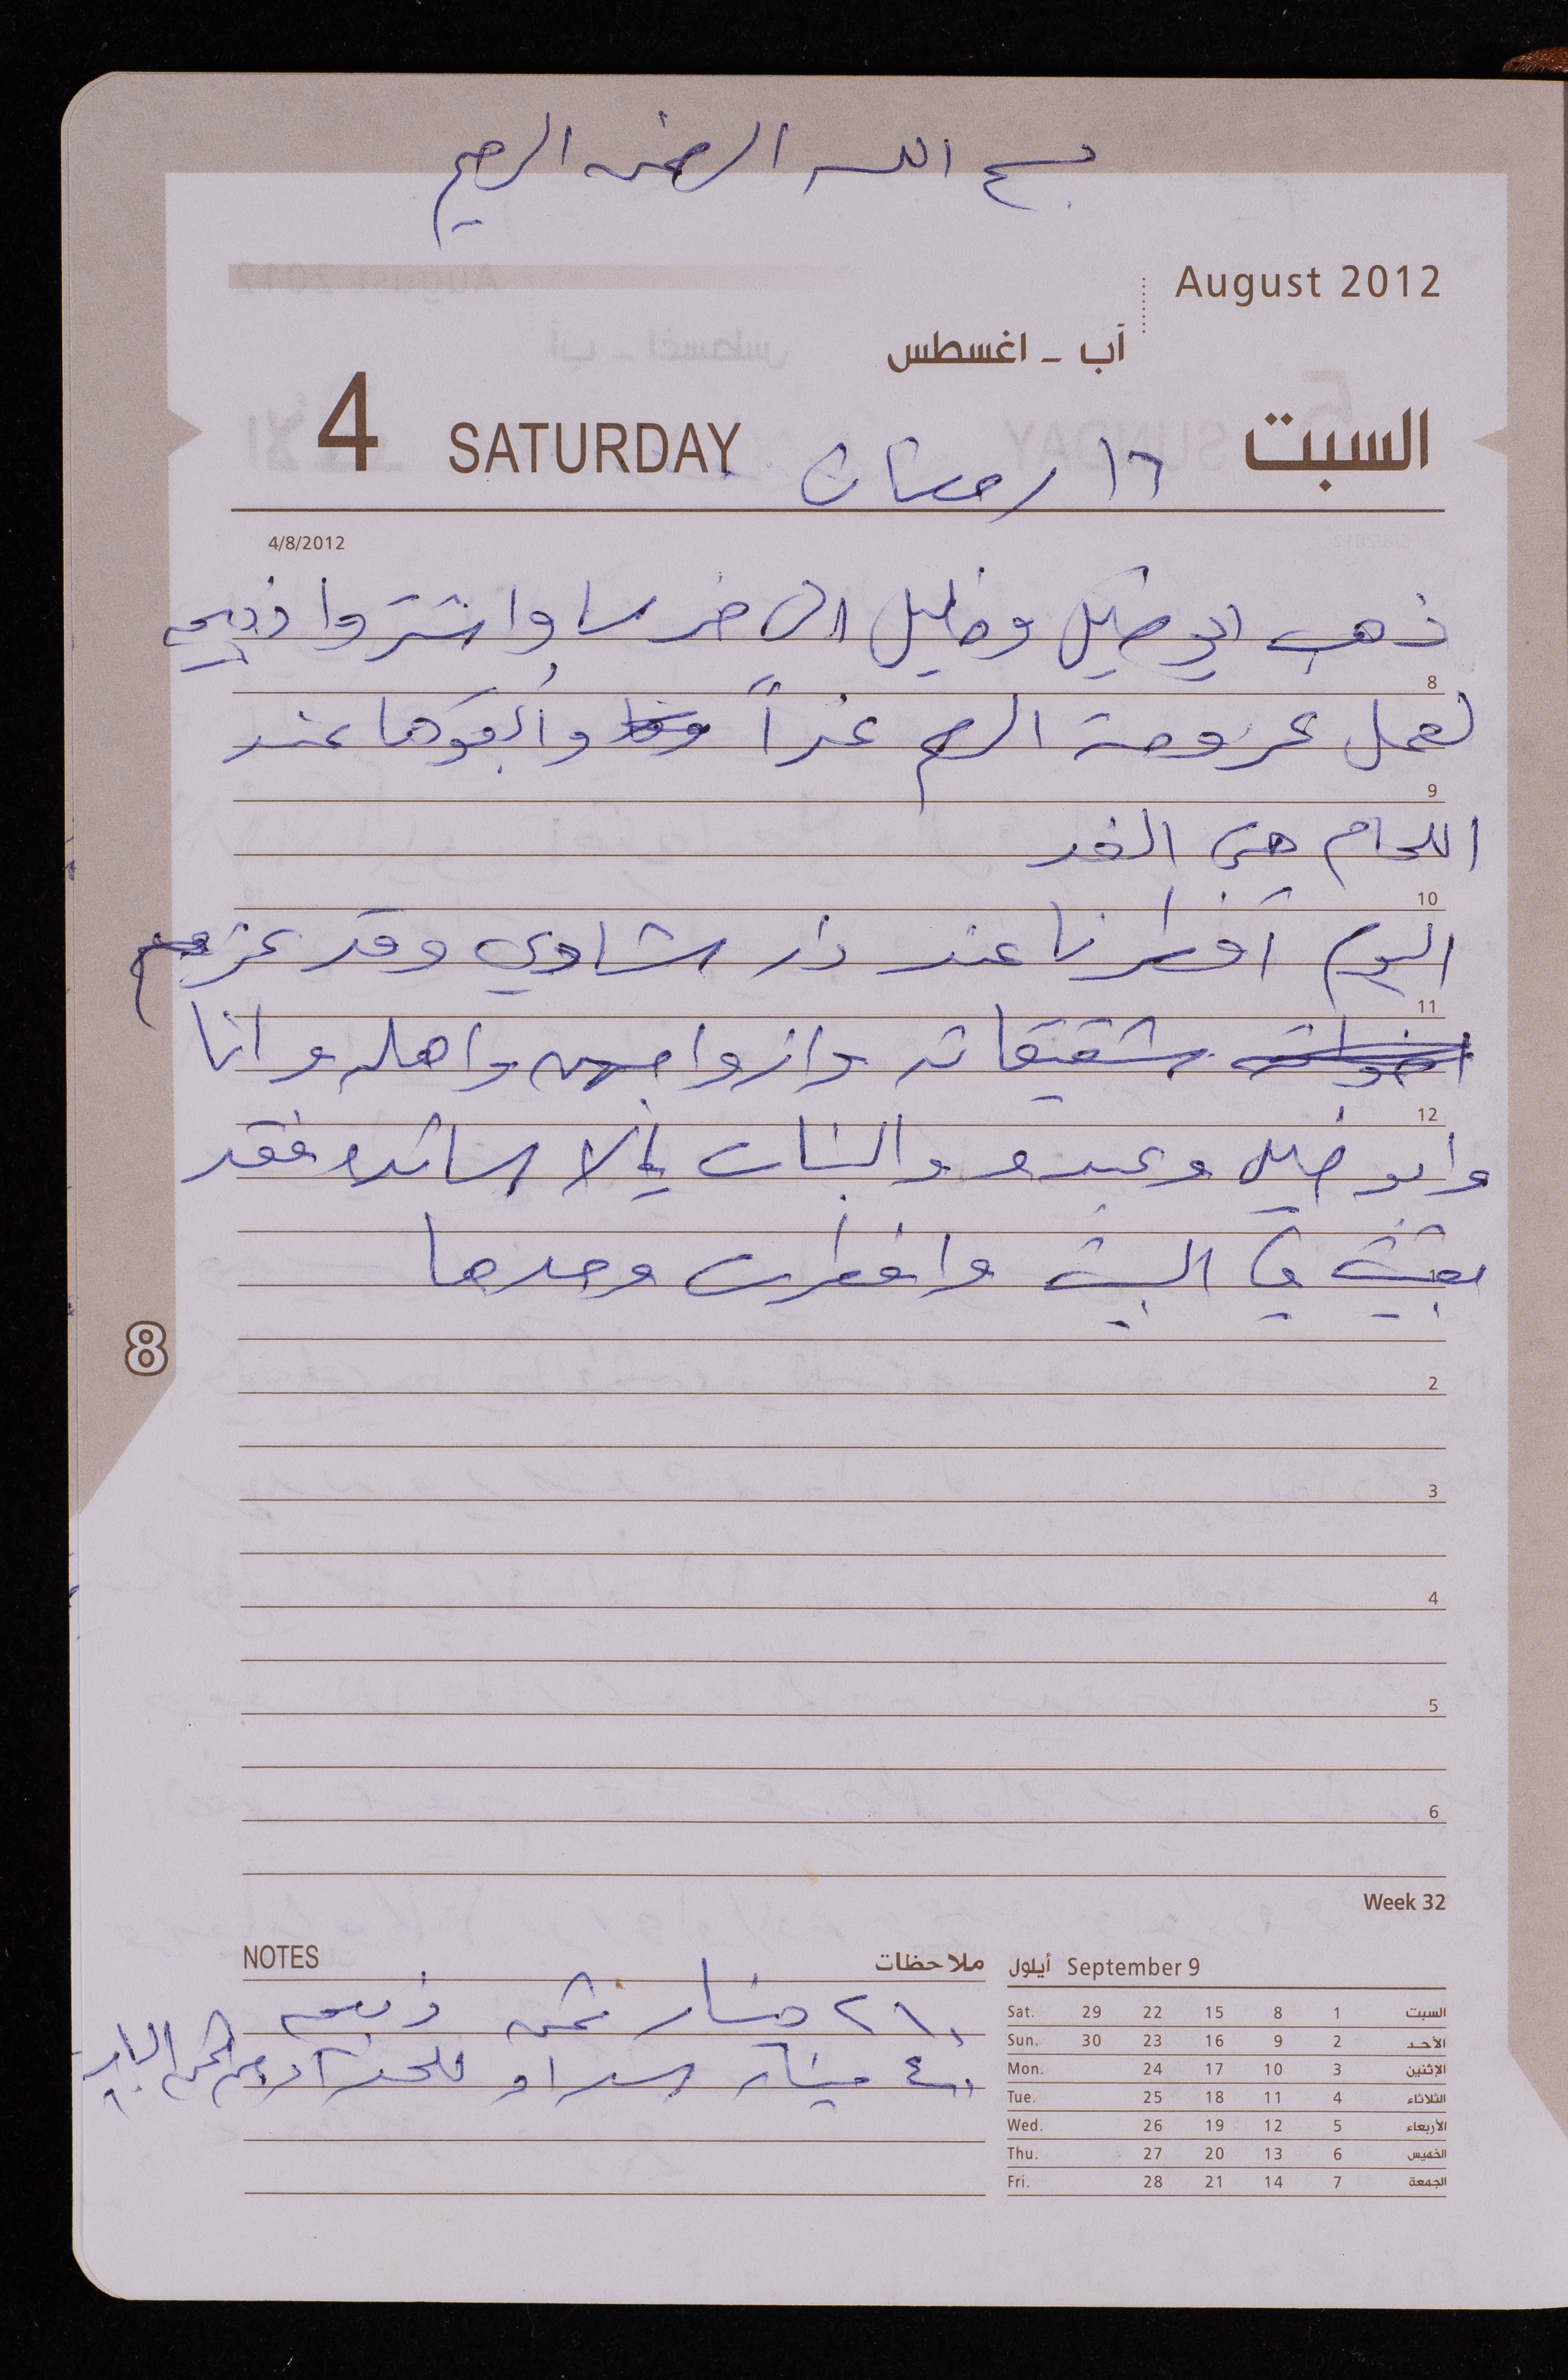 بسم الله الرحمن الرحيم
August 2012
آب - اغسطس
السبت ١٦ رمضان SATURDAY 4
4/8/2012
ذهب ابو خليل وخليل الى واشتروا ذبيحه
8
لعمل عزومة الرحم غداً وأبقوها عند
9
اللحام حتى الغد
10
اليوم أفطرنا عند دار شاوي وقد عزم
11
شقيقاته وازواجهن واهله وانا
12
وابو خليل وعبدو والبنات إلا فقد
1
بقيت في البيت وافطرت وحدها
8
2
3
4
5
6
Week 32
NOTES ملاحظات
٢١٠ دينار ثمن ذبيحه
٤٠ دينار
أيلول September 9
Sat. 29 22 15 8 1 السبت
Sun. 30 23 16 9 2 الأحد
Mon. 24 17 10 3 الإثنين
Tue. 25 18 11 4 الثلاثاء
Wed. 26 19 12 5 الأربعاء
Thu. 27 20 13 6 الخميس
Fri. 28 21 14 7 الجمعة